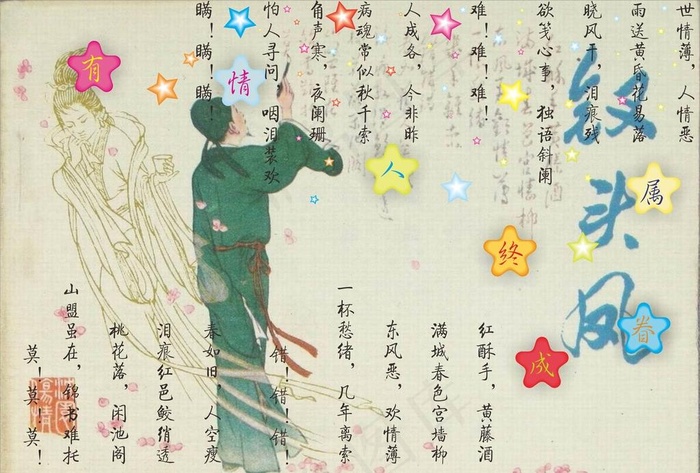 世情薄，人情恶
雨送黄昏花易落
晓风干，泪痕残
欲笺心事，独语斜阑
难！难！难！
人成各，今非昨
病魂常似秋千索
角声寒，夜阑珊
怕人寻问，咽泪装欢
瞒！瞒！瞒！
钗头凤
红酥手，黄藤酒
满城春色宫墙柳
东风恶，欢情薄
一杯愁绪，几年离索
错！错！错！
春如旧，人空瘦
泪痕红邑鲛绡透
桃花落，闲池阁
山盟虽在，锦书难托
莫！莫！莫！
有
情
人
终
成
眷
属